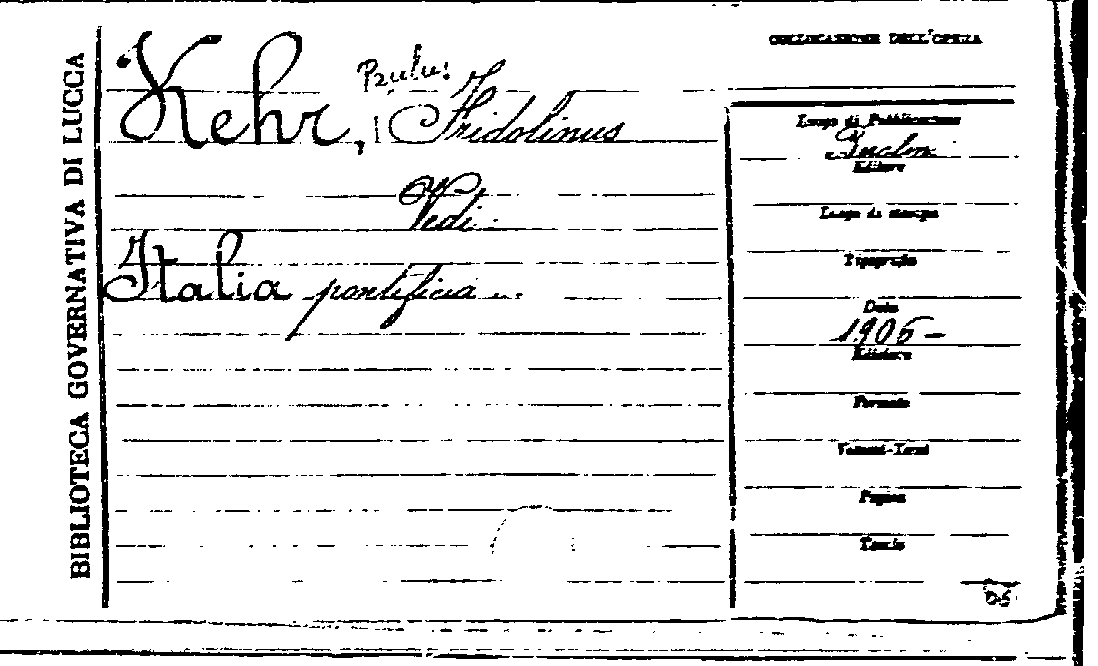 BIBLIOTECA GOVERNATIVA DI LUCCA
Kehr, Paulus Fridolinus
Vedi
Italia pontificia ...
COLLOCAZIONE DELL'OPERA
Luogo di Pubblicazione
Editore
Luogo di stampa
Tipografia
Data
1906 -
Edizione
Formato
Volumi-Tomi
Pagine
Tavole